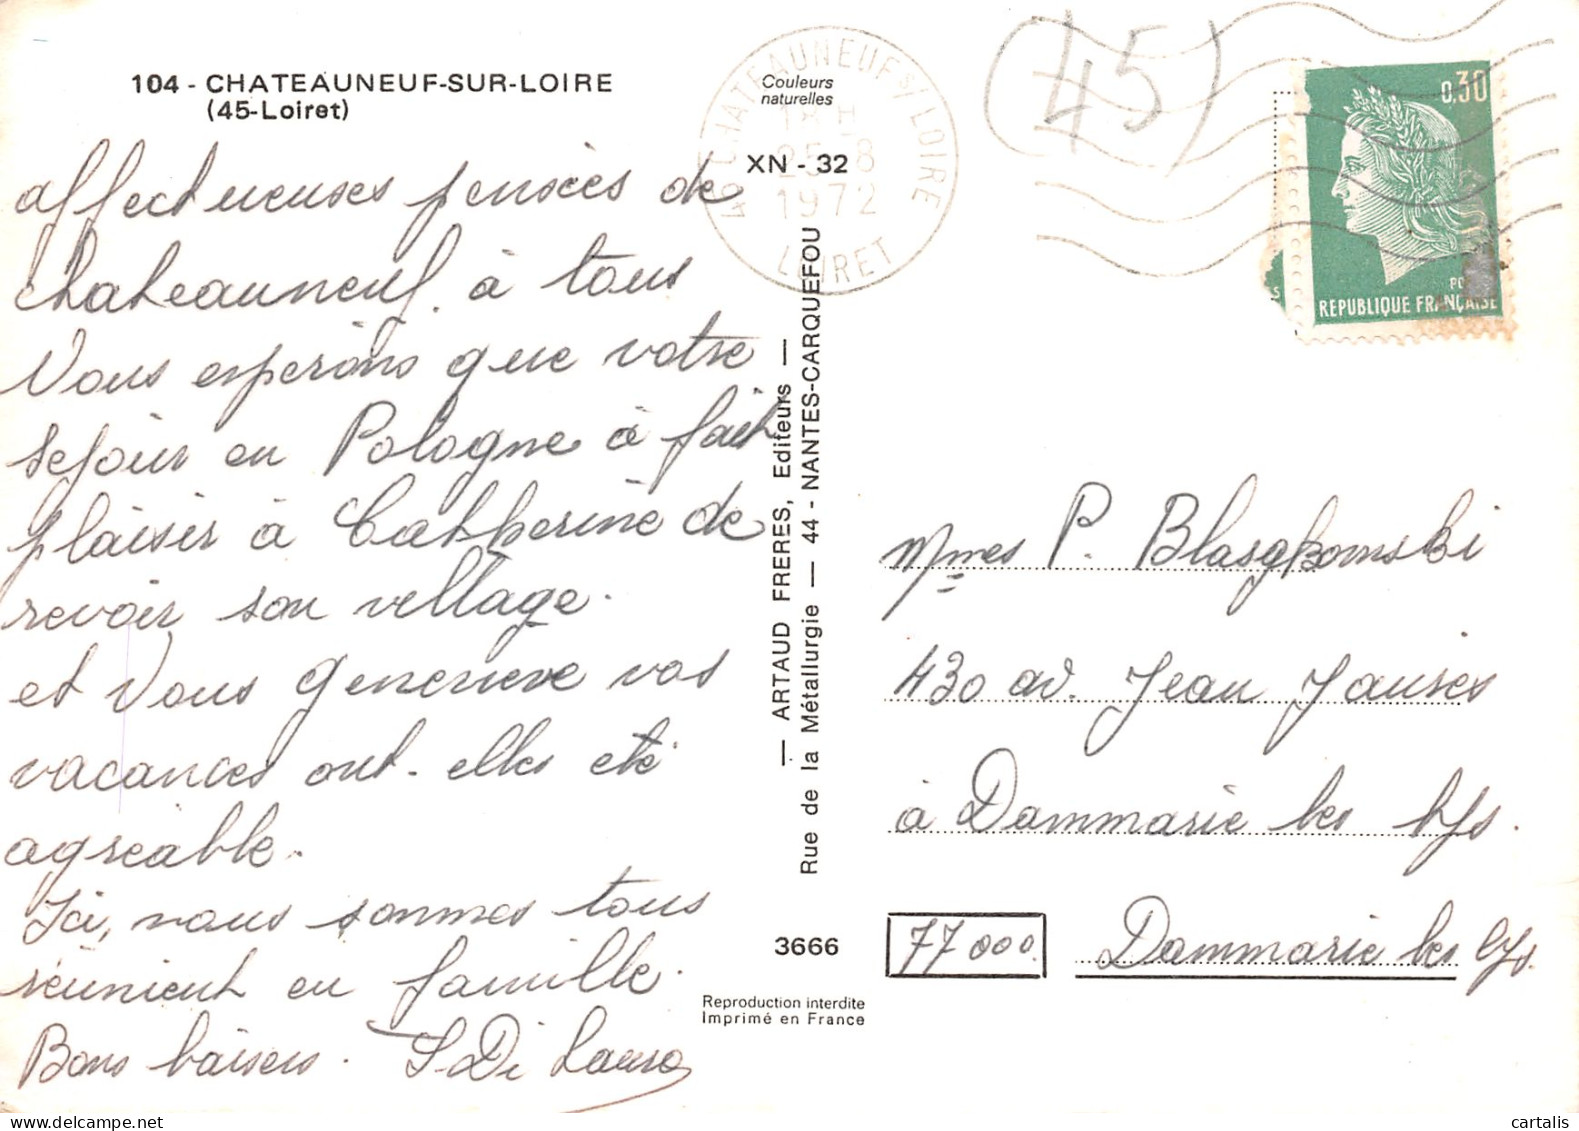 104 - CHATEAUNEUF-SUR-LOIRE
(45-Loiret)
affectueuses pensées de
chateauneuf. à tous
Vous esperons que votre
sejour en Pologne à fait
plaisir à Catherine de
revoir son village.
et Vous Genevieve vos
vacances ont-elles eté
agreable.
Ici, nous sommes tous
réunient en famille.
Bons baisers. S. Di Lauro
Couleurs
naturelles
XN - 32
— ARTAUD FRERES, Editeurs —
Rue de la Métallurgie — 44 - NANTES-CARQUEFOU
3666
Reproduction interdite
Imprimé en France
45 CHATEAUNEUF S/ LOIRE
18 H
25-8
1972
LOIRET
(45)
0,30
REPUBLIQUE FRANÇAISE
Mmes P. Blasgkomski
430 av. Jean Jaures
à Dammarie les lys.
77000. Dammarie les lys.
cartalis